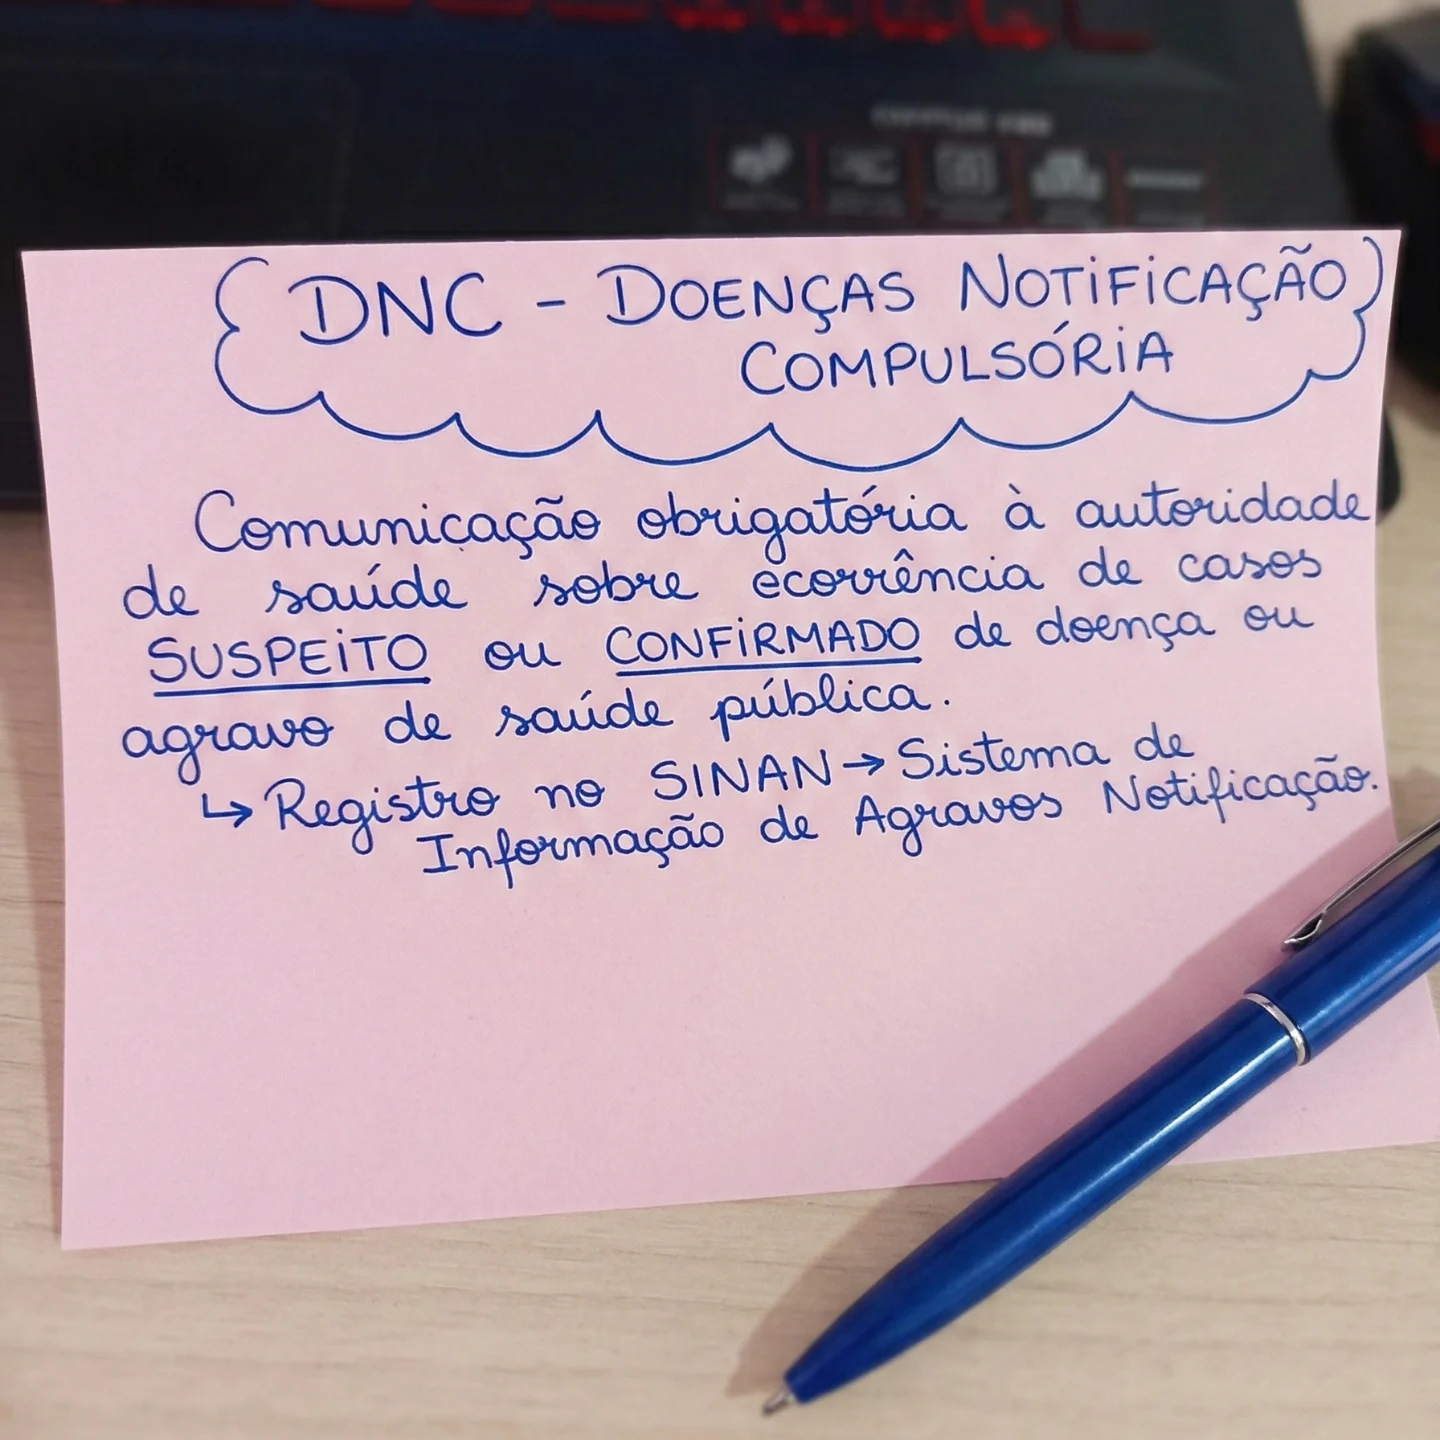 DNC - DOENÇAS NOTIFICAÇÃO
COMPULSÓRIA
Comunicação obrigatória à autoridade
de saúde sobre ecorrência de casos
SUSPEITO ou CONFIRMADO de doença ou
agravo de saúde pública.
↳ Registro no SINAN → Sistema de
Informação de Agravos Notificação.